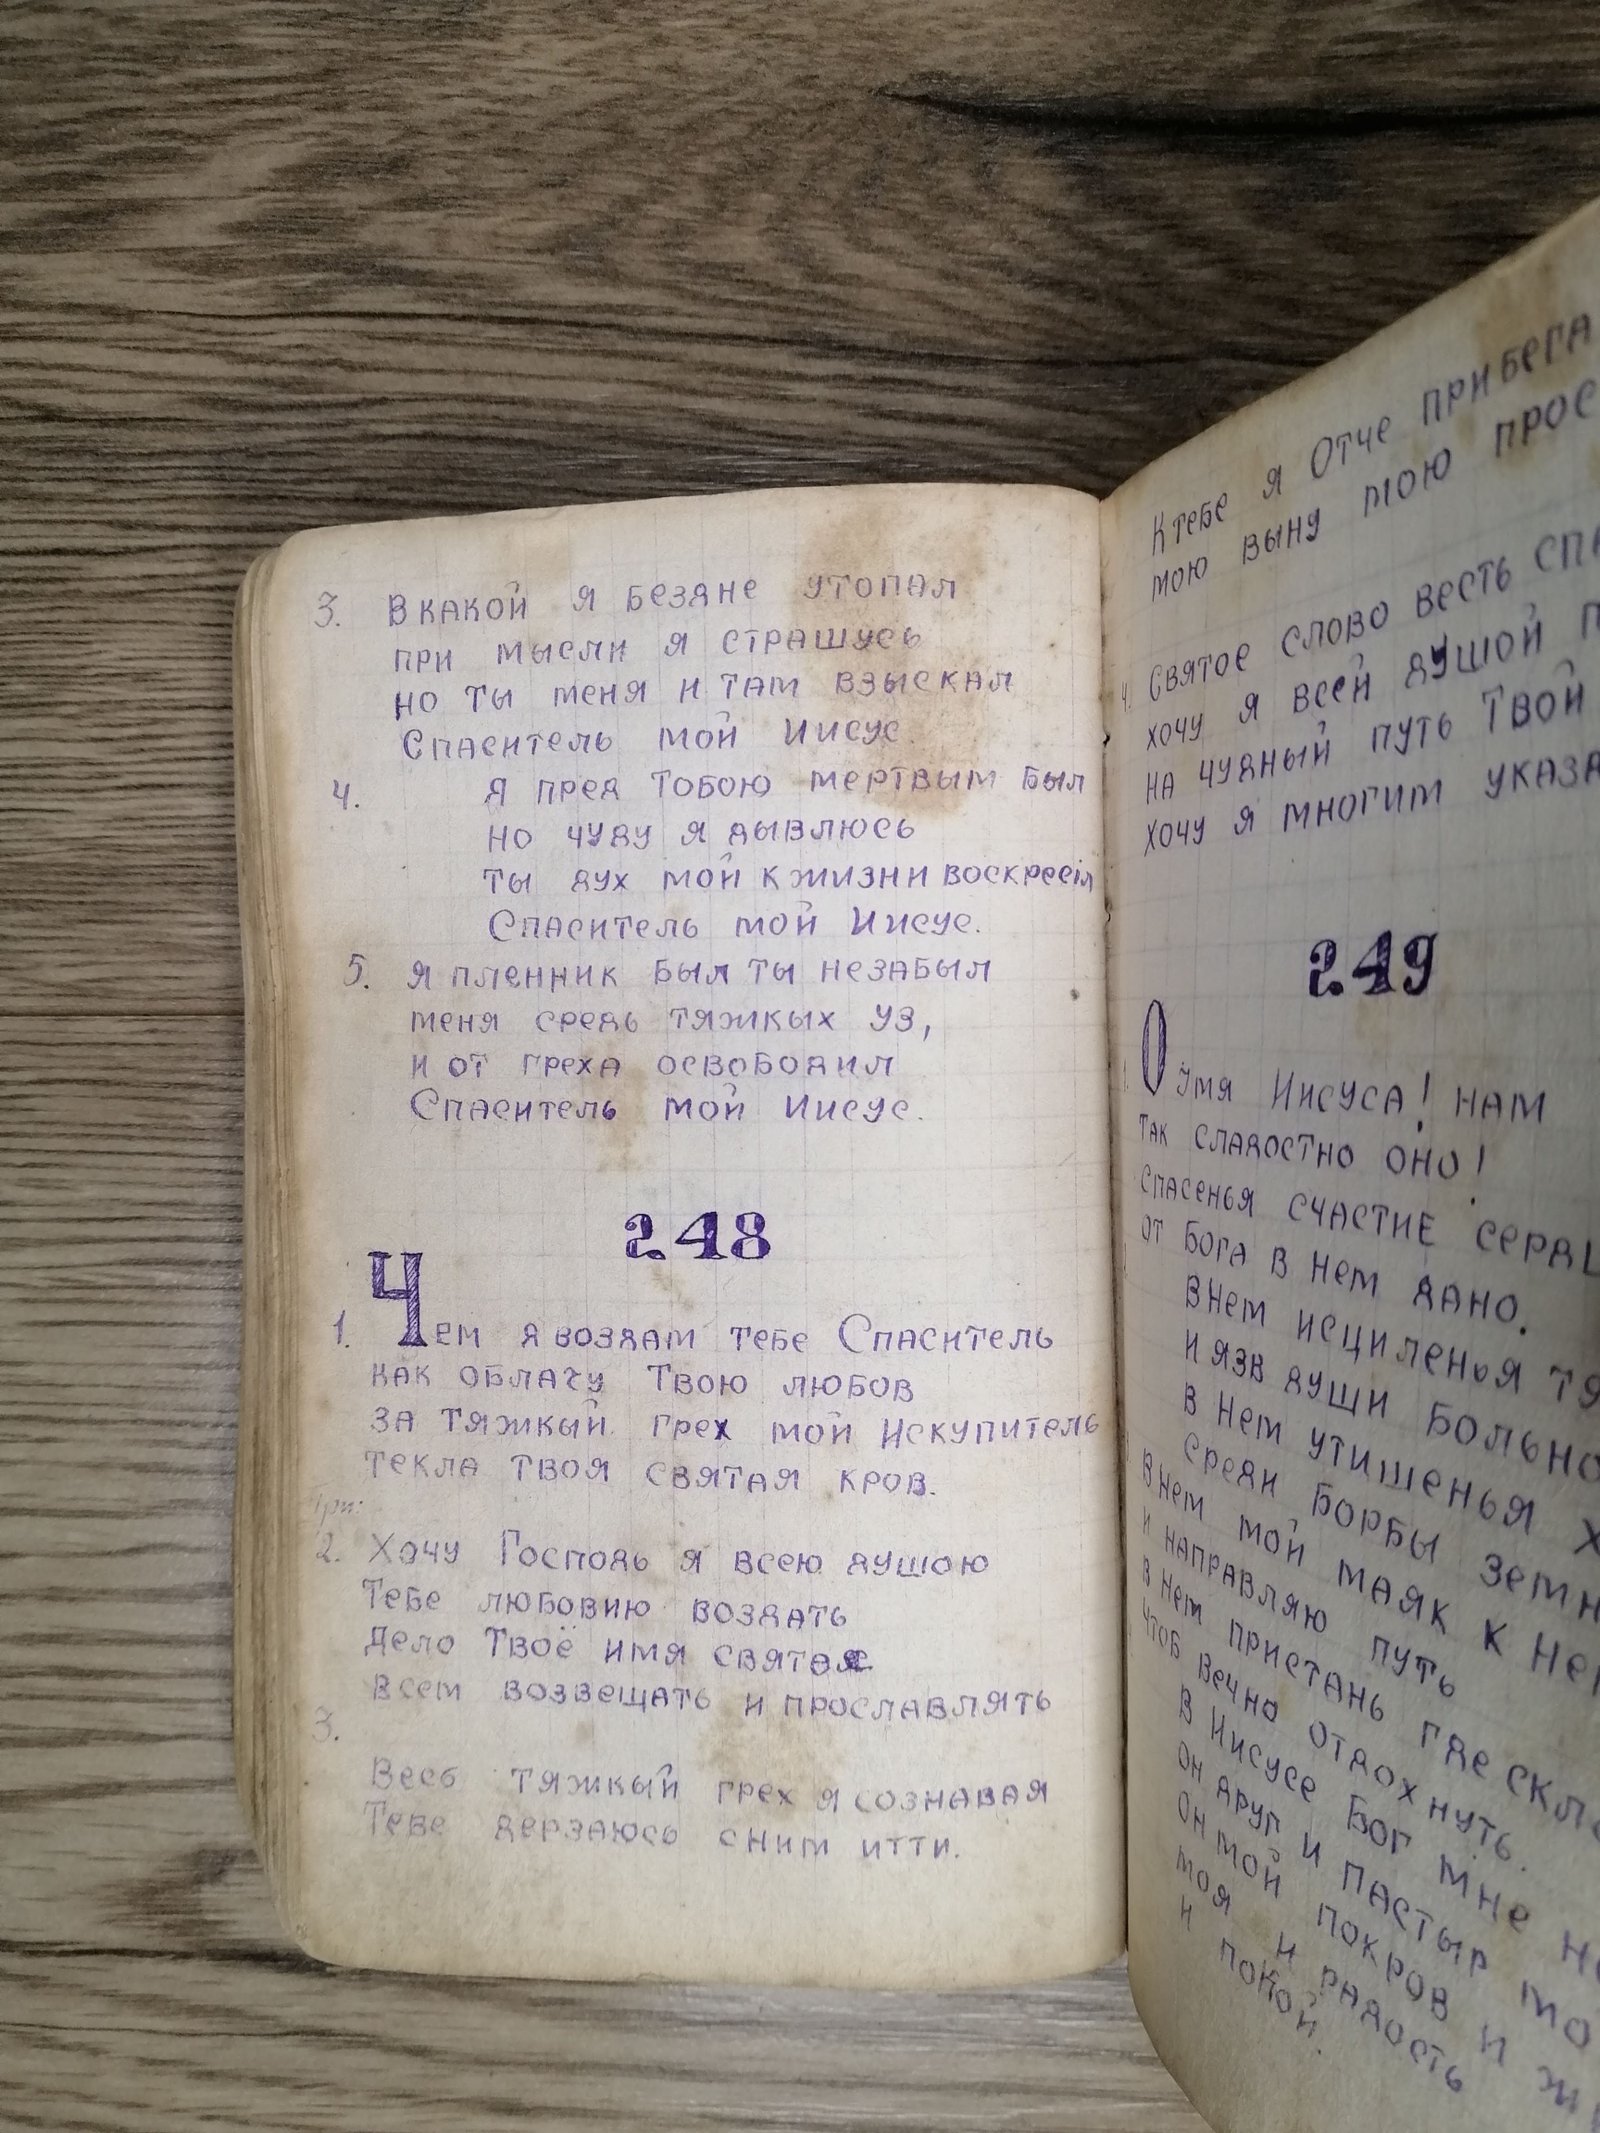 3. В какой я бездне утопал
при мысли я страшусь
но ты меня и там взыскал
Спаситель мой Иисус.
4. Я пред тобою мертвым был
но чуду я дывлюсь
ты дух мой к жизни воскресіл
Спаситель мой Иисус.
5. Я пленник был ты незабыл
меня средь тяжкых уз,
и от греха освободил
Спаситель мой Иисус.
248
1. Чем я воздам тебе Спаситель
как облачу Твою любов
за тяжкый грех мой Искупитель
текла твоя святая кров.
При:
2. Хочу Господь я всею душою
Тебе любовию воздать
Дело Твоё имя святое
всем возвещать и прославлять
3.
Весь тяжкый грех я сознавая
Тебе дерзаюсь сним итти.
Ктебе я Отче прибега
мою выну мою прос
4. Святое слово весть спа
хочу я всей душой п
на чудный путь Твой
хочу я многим указа
249
1. О Имя Иисуса! нам
так сладостно оно!
спасенья счастие сердц
от Бога в нем дано.
внем исциленья тя
и язв души больно
в нем утишенья х
среди борбы земн
внем мой маяк к нем
и направляю путь
в нем пристань где скло
чтоб вечно отдохнуть.
В Иисусе Бог мне но
Он друг и пастыр мо
Он мой покров и жи
моя и радость
и покой.